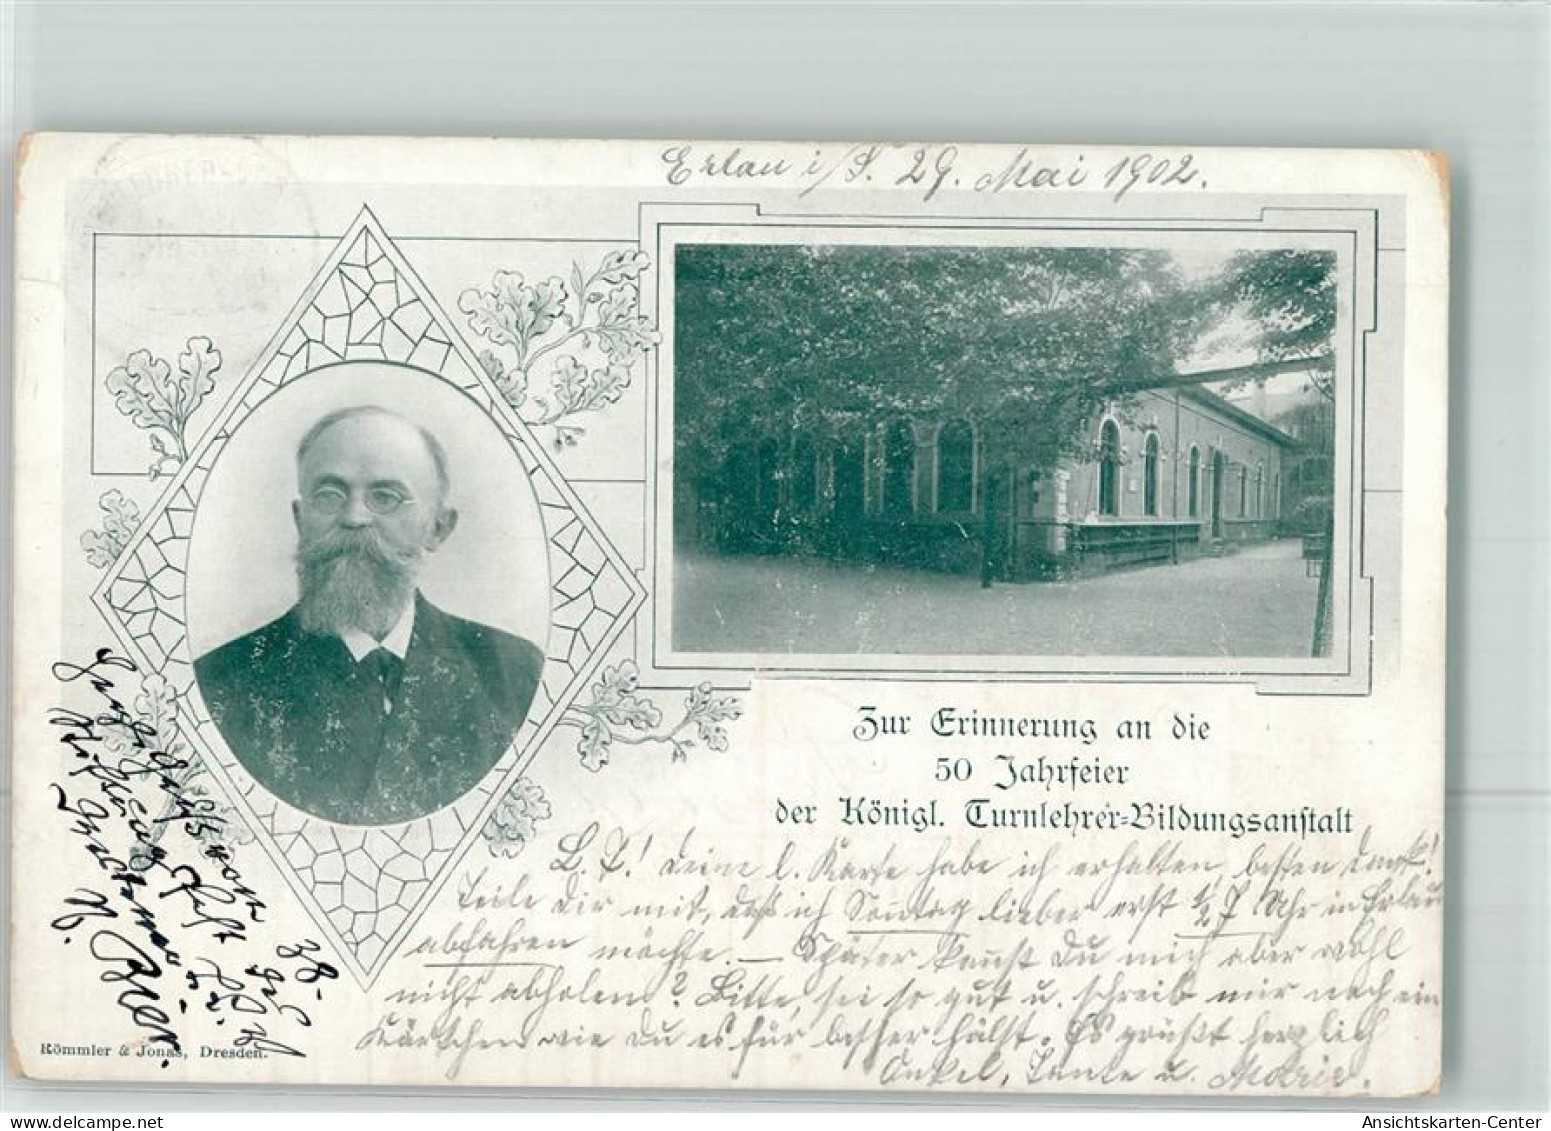 Erlau i/S. 29. Mai 1902.
Zur Erinnerung an die
50 Jahrfeier
der Königl. Turnlehrer-Bildungsanstalt
L. P.! Deine l. Karte habe ich erhalten, besten Dank!
Teile Dir mit, daß ich Sonntag lieber erst ½ 7 Uhr in Erlau
abfahren möchte. — Später kannst Du mich aber wohl
nicht abholen? Bitte, sei so gut u. schreib mir noch ein
Kärtchen wie Du es für besser hältst. Es grüßt herzlich
Onkel, Tante u. Marie.
Römmler & Jonas, Dresden.
Bier.
Ansichtskarten-Center